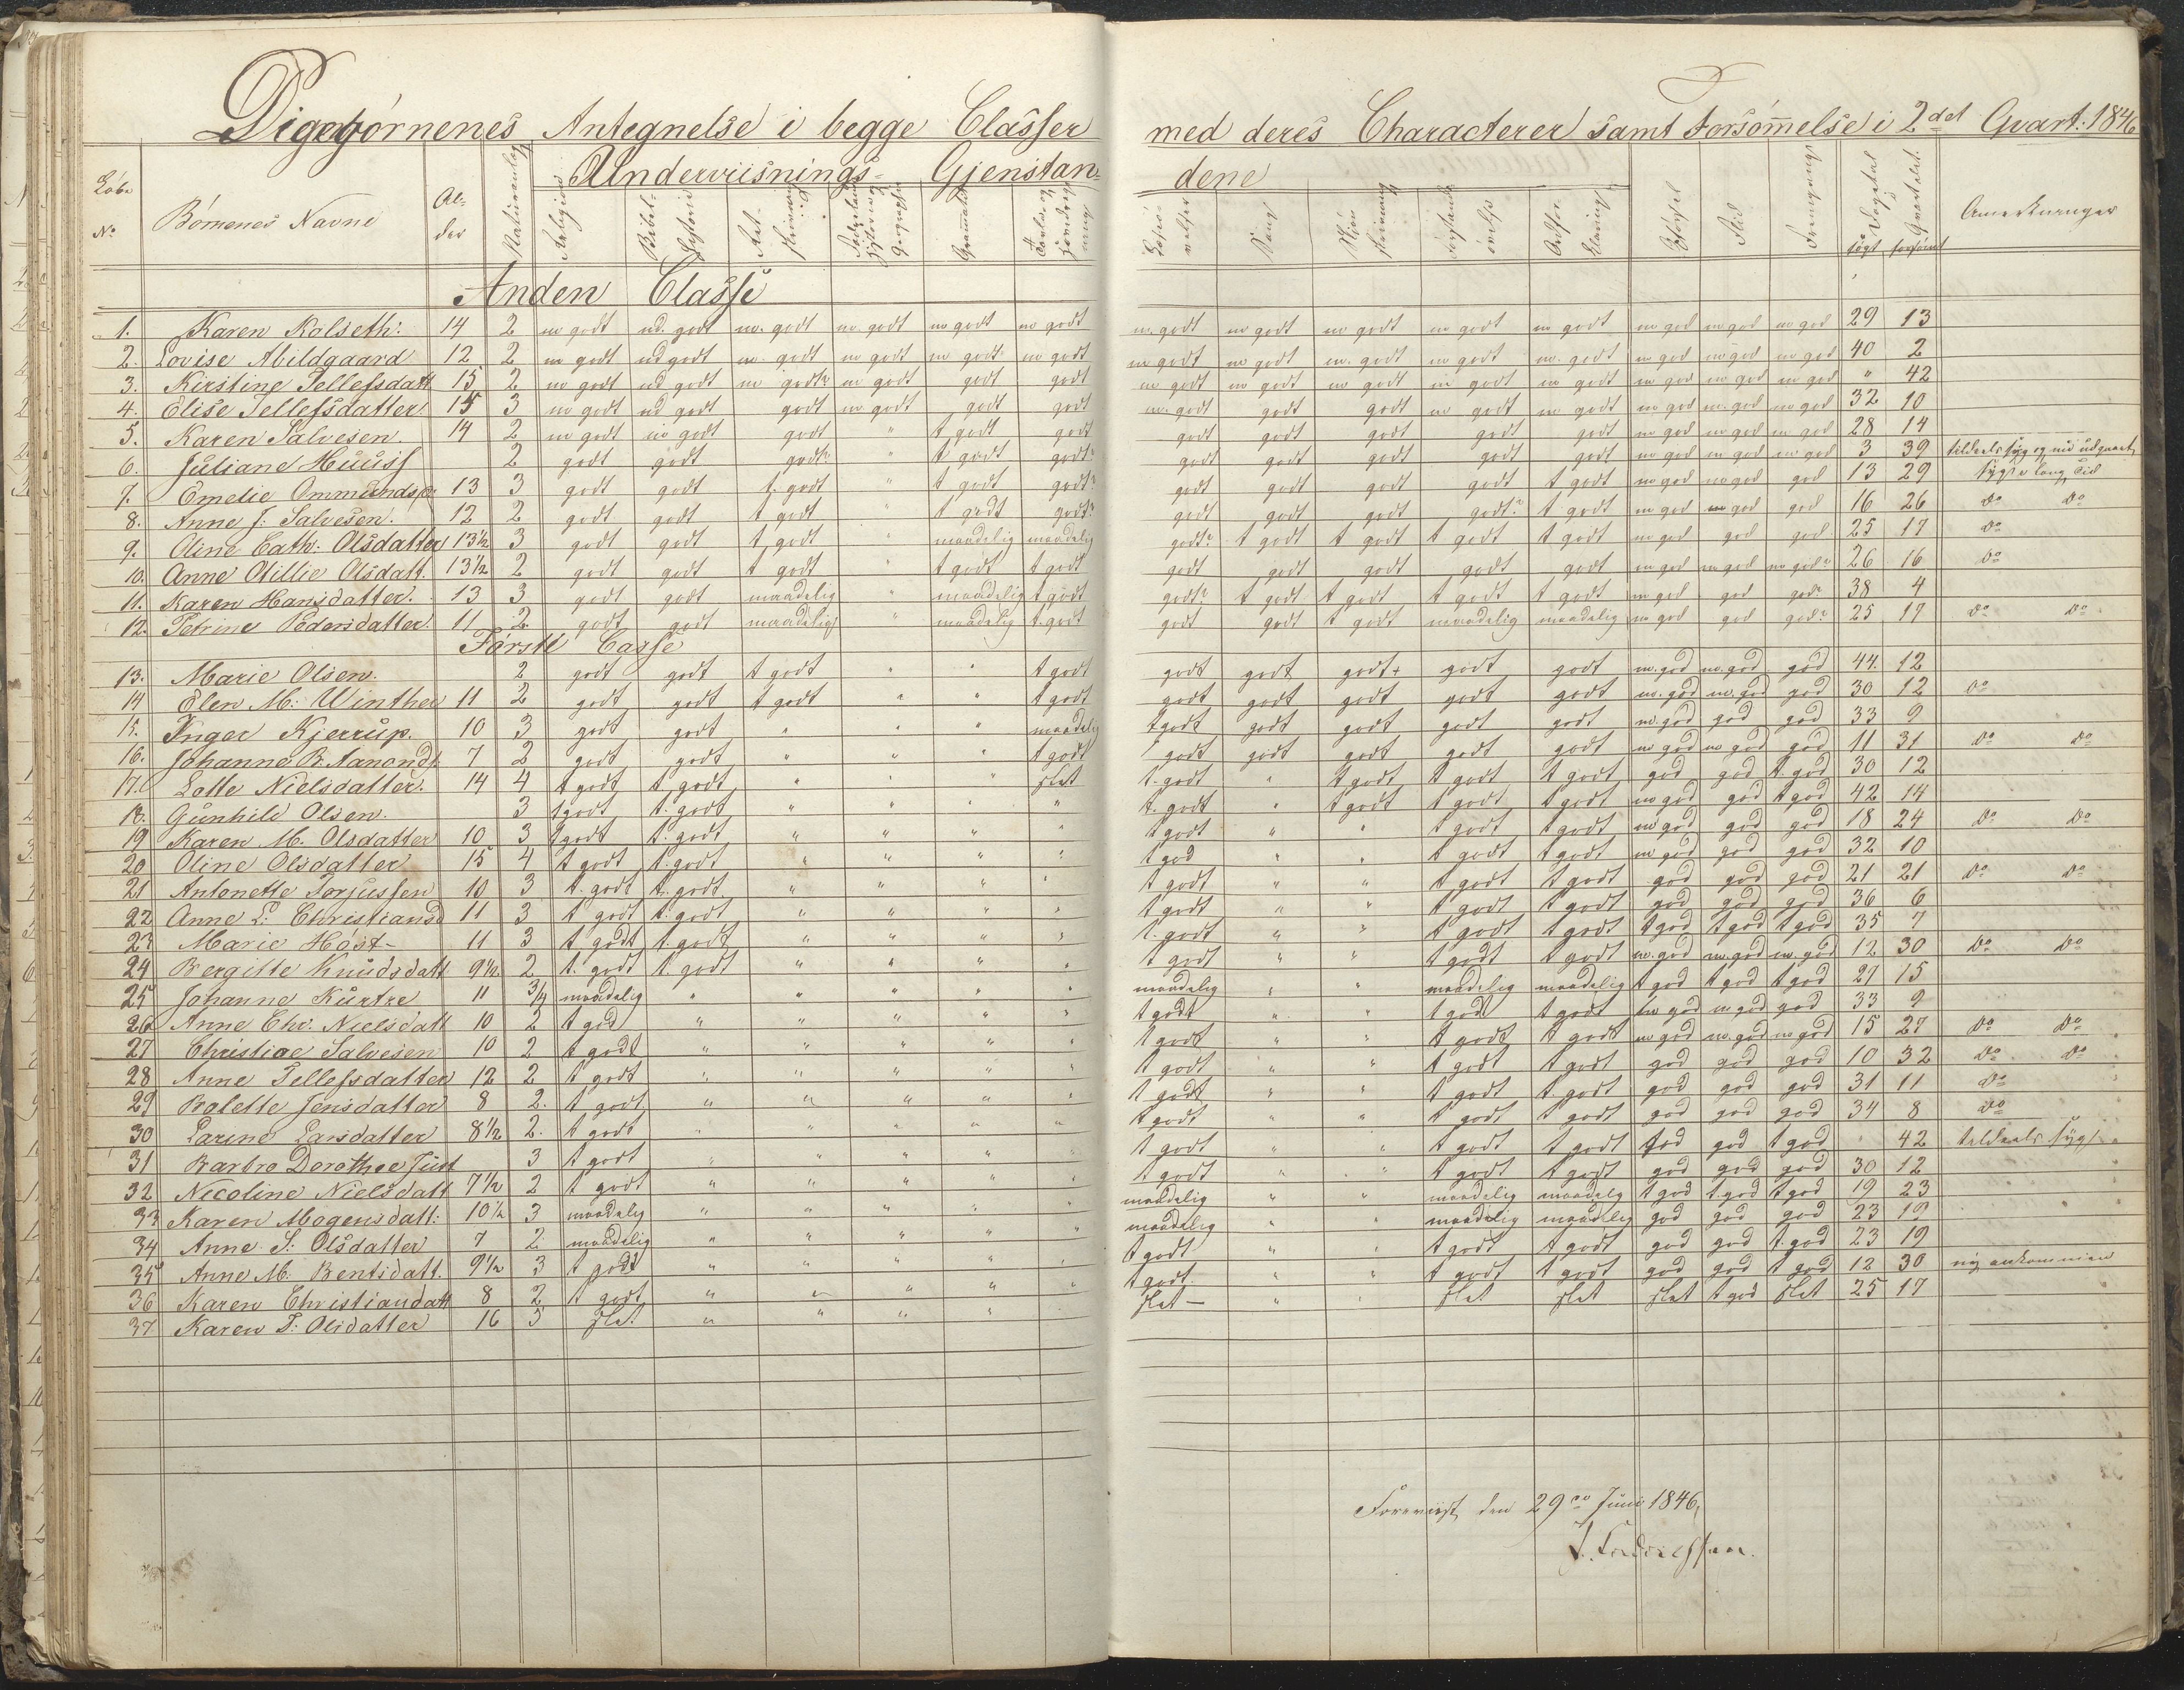 Pigebørnenes Antegnelse i begge Classer med deres Characterer samt Forsømelse i 2det Qvart: 1846
Underviisnings- Gjenstan- dene
Løbe No Børnenes Navne Al- der Religion Bibel- Historie Sang Dagtal Qvartalet søgt forsømt Anmerkninger
Anden Classe
1. Karen Kalseth: 14 2 m godt ud. godt m. godt m. godt m godt m godt m. godt m godt m godt m godt m godt m god m god m god 29 13
2. Lovise Abildgaard 12 2 m godt ud godt m. godt m godt m godt m godt m godt m godt m. godt m godt m. godt m god m god m god 40 2
3. Kirstine Tellefsdatt 15 2 m godt ud godt m godt? m godt godt godt m godt m godt m godt m godt m godt m god m god m god " 42
4. Elise Tellefsdatter 15 3 m godt ud godt godt m godt godt godt m. godt godt godt m godt m godt m god m. god m god 32 10
5. Karen Salvesen. 14 2 m godt m godt godt " t godt godt godt godt godt godt godt m god m god m god 28 14
6. Juliane Huuss 2 godt godt godt? " t godt godt? godt godt godt godt godt m god m god m god 3 39 tildeels syg og nu udgaaet
7. Emelie Ommunds 13 3 godt godt t. godt " t godt godt? godt godt godt godt t godt m god m god god 13 29 syg i lang Tid
8. Anne J: Salvesen. 12 2 godt godt t godt " t godt godt? godt godt godt godt? t godt m god m god god 16 26 Do Do
9. Oline Cath: Olsdatter 13½ 3 godt godt t godt " maadelig maadelig godt? t godt t godt t godt t godt m god god god 25 17 Do
10. Anne Otillie Olsdatt. 13½ 2 godt godt t godt " t godt t godt godt godt godt godt godt m god m god m god? 26 16 Do
11. Karen Hansdatter. 13 3 godt godt maadelig " maadelig t godt godt? t godt t godt t godt t godt m god god god? 38 4
12. Petrine Pedersdatter. 11 2 godt godt maadelig " maadelig t. godt godt godt t godt maadelig maadelig m god god god? 25 17 Do Do
Første Casse
13. Marie Olsen. 2 godt godt t godt " " t godt godt godt godt+ godt godt m. god m. god god 44. 12
14 Elen M: Winther 11 2 godt godt t godt " " t godt godt godt godt godt godt m. god m. god god 30 12 Do
15. Inger Kjerrup. 10 3 godt godt " " " maadelig t godt godt godt godt godt m. god god god 33 9
16. Johanne B. Aanonds 7 2 godt godt " " " t godt t godt godt godt godt godt m god m god god 11 31 Do Do
17. Lotte Nielsdatter. 14 4 t godt t godt " " " slet t. godt " t godt t godt t godt god god t. god 30 12
18. Gunhild Olsen. 3 t godt t. godt " " " " t. godt " t godt t godt t godt m god god t god 42 14
19 Karen M. Olsdatter 10 3 t godt t. godt " " " " t godt " " t godt t godt m god god god 18 24 Do Do
20 Oline Olsdatter 15 4 t godt t. godt " " " " t god " " t godt t godt m god god god 32 10
21 Antonette Torjussen 10 3 t. godt t. godt " " " " t godt " " t godt t godt god god god 21 21 Do Do
22 Anne L: Christiansd 11 3 t godt t. godt " " " " t godt " " t godt t godt god god god 36 6
23 Marie Høst- 11 3 t godt t. godt " " " " t. godt " " t godt t godt t god t god t god 35 7
24 Bergitte Knudsdatt 9½ 2 t. godt t. godt " " " " t godt " " t godt t godt m. god m. god m. god 12 30 Do Do
25 Johanne Kurtze 11 3/4 maadelig " " " " " maadelig " " maadelig maadelig t god t god t god 27 15
26 Anne Chr. Nielsdatt 10 2 t god " " " " " t godt " " t god t godt m god m god god 33 9
27 Christiae Salvesen 10 2 t godt " " " " " t godt " " t godt t godt m god m. god m god 15 27 Do Do
28 Anne Tellefsdatter 12 2 t godt " " " " " t godt " " t godt t godt god god god 10 32 Do Do
29 Bolette Jensdatter 8 2. t godt " " " " " t godt " " t godt t godt god god god 31 11 Do
30 Larine Larsdatter 8½ 2. t godt " " " " " t godt " " t godt t godt god god god 34 8 Do
31 Barbro Dorothee Just 3 t godt " " " " " t godt " " t godt t godt god god t god " 42 tildeels syg
32 Nicoline Nielsdatt 7½ 2 t godt " " " " " t godt " " t godt t godt god god god 30 12
33 Karen Mogensdatt: 10½ 3 maadelig " " " " " maadelig " " maadelig maadelig t god t god t god 19 23
34 Anne S: Olsdatter 7 2 maadelig " " " " " maadelig " " maadelig maadelig god god god 23 19
35 Anne M. Bentsdatt. 9½ 3 t godt " " " " " t godt " " t godt t godt god god t. god 23 19
36 Karen Christiandatt 8 2 t godt " " " " " t godt " " t godt t godt god god t god 12 30 ny ankommen
37 Karen T: Olsdatter 16 3 slet " " " " " slet " " slet slet slet t god slet 25 17
Foreviist den 29de Juni 1846,